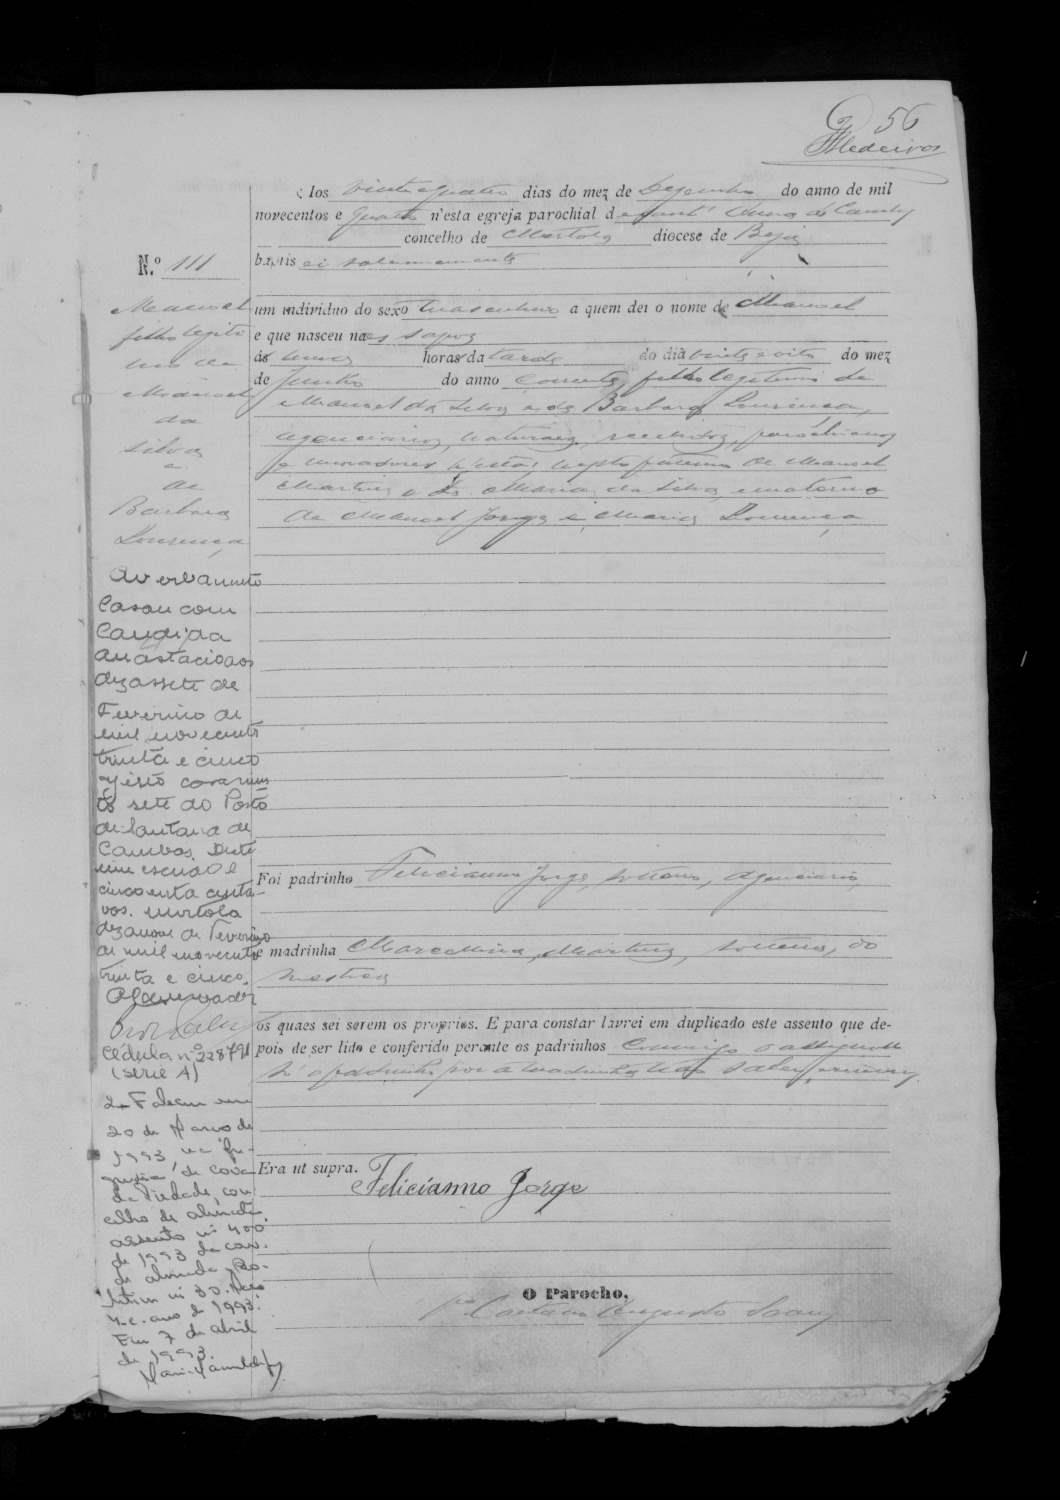 56
Medeiros
Aos vinte e quatro dias do mez de Dezembro do anno de mil
novecentos e quatro n'esta egreja parochial de Sant'Anna de Cambas
concelho de Mertola diocese de Beja
N.º 111
baptisei solemnemente
um individuo do sexo masculino a quem dei o nome de Manoel
e que nasceu na
ás horas da tarde do dia vinte e oito do mez
de Junho do anno corrente, filho legitimo de
Manoel da Silva e de Barbara Lourença,
naturaes, recebidos, parochianos
e moradores n'esta, neto paterno de Manoel
Martins e de Maria da Silva, e materno
de Manoel Jorge e Maria Lourença
Manoel
filho legiti
mo de
Manoel
da
Silva
e
de
Barbara
Lourença
Averbamento
Casou com
Candida
Anastacio aos
dezassete de
Fevereiro de
mil novecentos
trinta e cinco
registo
sete do Posto
de Santana de
Cambas. Deste
um escudo e
cinco enta centa-
vos. Mertola
dezanove de Fevereiro
de mil novecentos
trinta e cinco.
Cédula nº 228791
(serie A)
2- Faleceu em
20 de Março de
1993, na fre-
guesia de Cova
da Piedade, con
celho de Almada.
assento nº 400
de 1993 da con.
de Almada. Bo-
letim nº 30. Maço
ano de 1993.
Em 7 de abril
de 1993.
Foi padrinho Felicianno Jorge, solteiro,
e madrinha Marcellina Martins, solteira, do
mestica
os quaes sei serem os proprios. E para constar lavrei em duplicado este assento que de-
pois de ser lido e conferido perante os padrinhos commigo o assignou
só o padrinho por a madrinha não saber escrever.
Era ut supra.
Felicianno Jorge
O Parocho,
Caetano Augusto